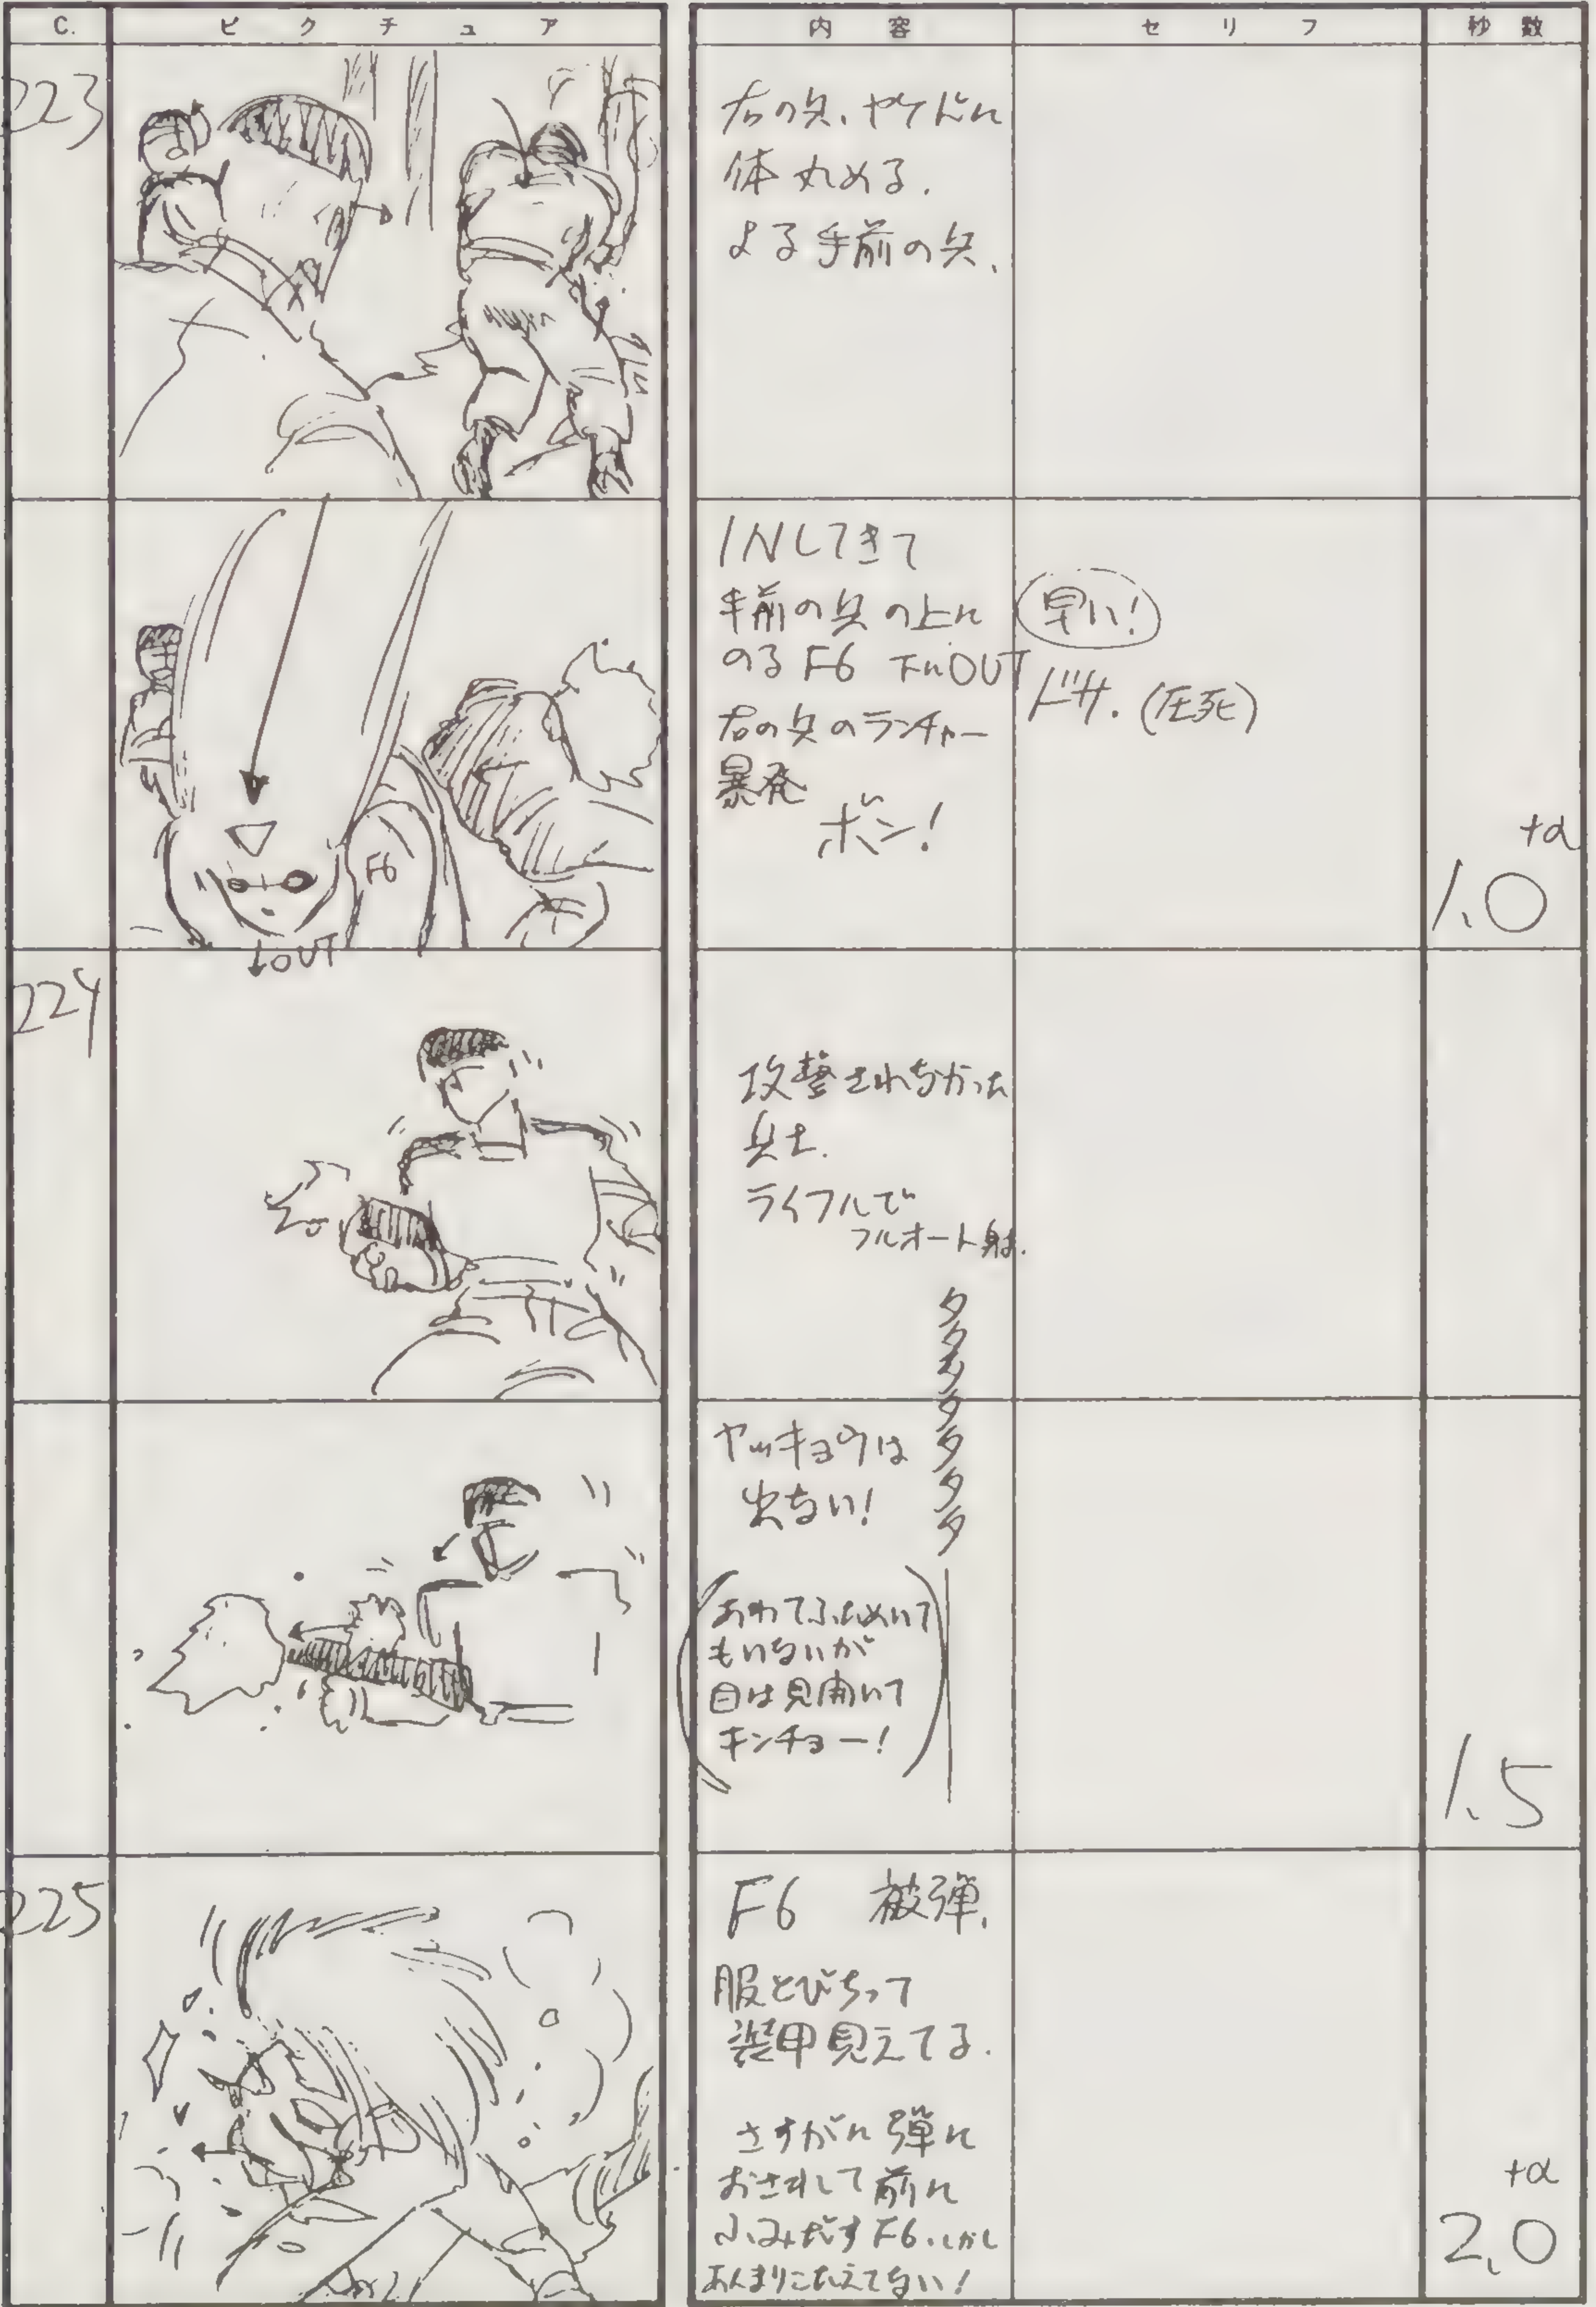 C.
ピクチュア
内容
セリフ
秒数
223
右の兵、ヤケドに
体丸める.
よる手前の兵、
INしてきて
手前の兵の上に
のるF6 下にOUT
右の兵のランチャー
暴発
ボン!
早い!
ドサ.(圧死)
+α
1.0
F6
↓OUT
224
攻撃されなかった
兵士.
ライフルで
フルオート射.
タタタタタタタ
ヤッキョウは
出ない!
(あわてふためいて
もいないが
目は見開いて
キンチョー!)
1.5
225
F6 被弾.
服とびちって
装甲見えてる.
さすがに弾に
おされて前に
ふみだすF6.しかし
あんまりこたえてない!
+α
2.0